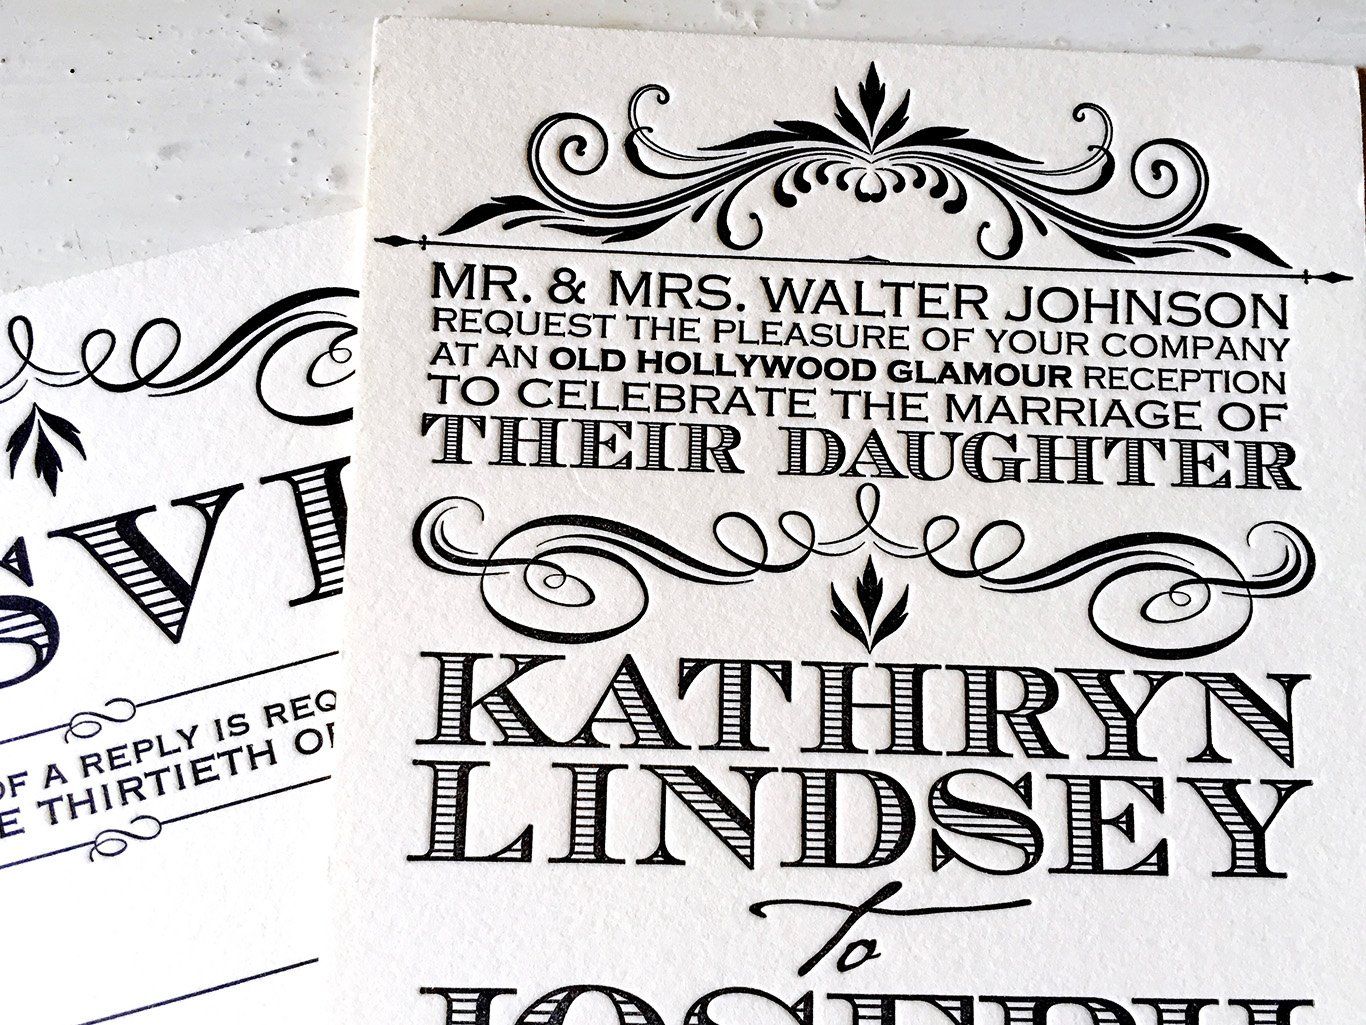 MR. & MRS. WALTER JOHNSON
REQUEST THE PLEASURE OF YOUR COMPANY
AT AN OLD HOLLYWOOD GLAMOUR RECEPTION
TO CELEBRATE THE MARRIAGE OF
THEIR DAUGHTER
KATHRYN
LINDSEY
to
JOSEPH
SVP
OF A REPLY IS REQ
E THIRTIETH OF